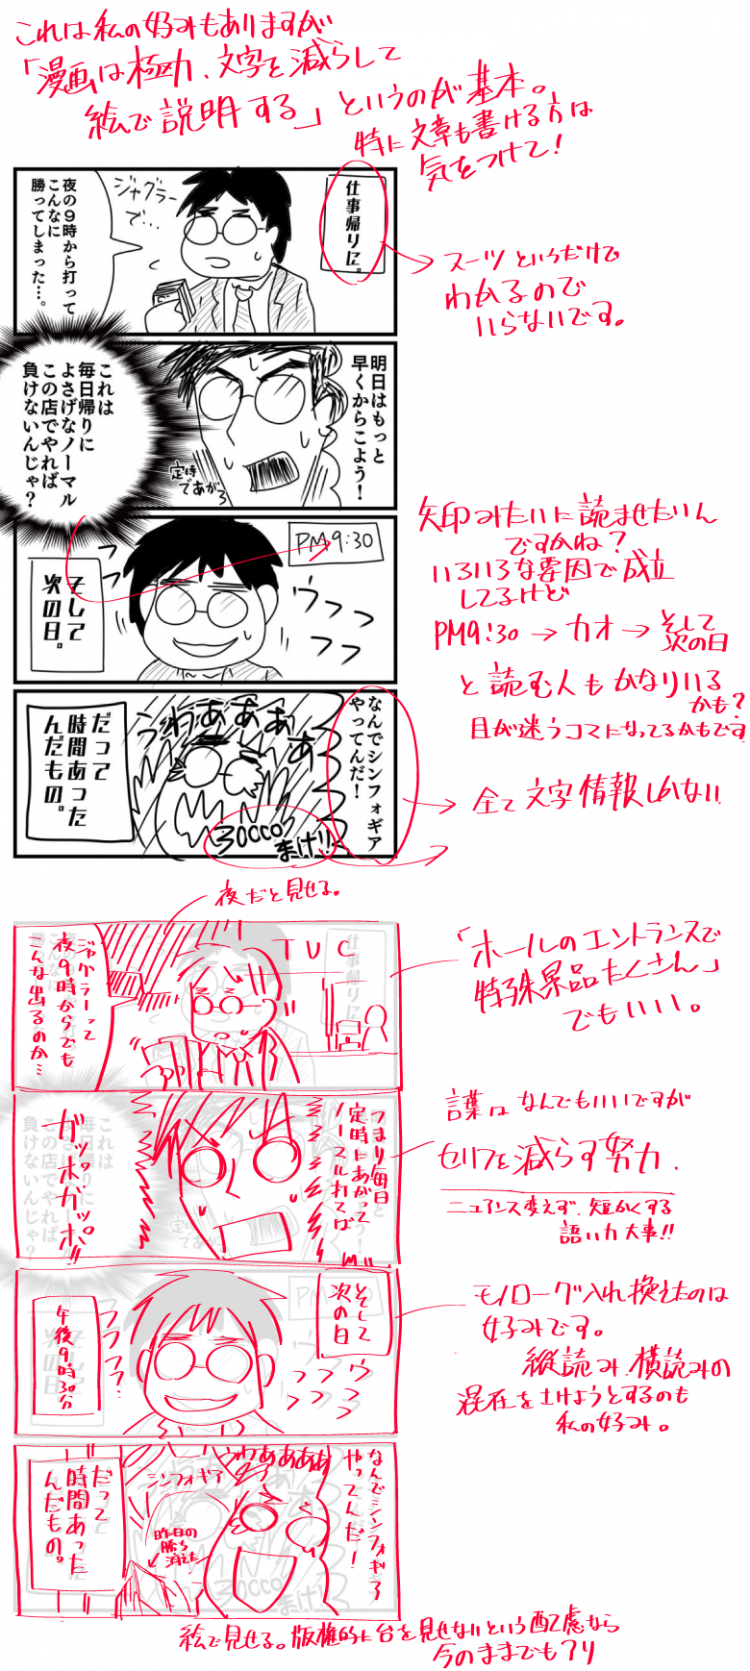 これは私の好みもありますが
「漫画は極力、文字を減らして
絵で説明する」というのが基本。
特に文章も書ける方は
気をつけて!
仕事帰りに。
ジャグラー
で…
夜の9時から打って
こんなに
勝ってしまった…。
スーツというだけで
わかるので
いらないです。
明日はもっと
早くからこよう!
定時
であがろ
これは
毎日帰りに
よさげなノーマル
この店でやれば
負けないんじゃ?
PM9:30
ウフフっ
フフ
フフ
そして
次の日。
矢印みたいに読ませたいん
ですかね?
いろいろな要因で成立
してるけど
PM9:30→カオ→そして
次の日
と読む人もかなりいる
かも?
目が迷うコマになってるかもです
なんでシンフォギア
やってんだ!
うわあああぁあ
30000
まけ!!
だって
時間あった
んだもの。
全て文字情報しかない
夜だと見せる。
TUC
ジャグラーって
夜9時からでも
こんな出るのか…
「ホールのエントランスで
特殊景品たくさん」
でもいい。
つまり毎日
定時にあがって
ノーマルれてば
ガッポガッポ!!
言葉はなんでもいいですが
セリフを減らす努力、
ニュアンス変えず、短かくする
語い力大事!!
そして
次の日
ウっ
フっ
フっ
フフフフ?
午後9時30分
モノローグ入れ換えたのは
好みです。
縦読み、横読みの
混在を避けようとするのも
私の好み。
なんでシンフォギア
やってんだ!
うわあああああ
シンフォギア
昨日の
勝ち
消えた
だって
時間あった
んだもの。
絵で見せる。版権的に台を見せないという配慮なら
今のままでもアリ